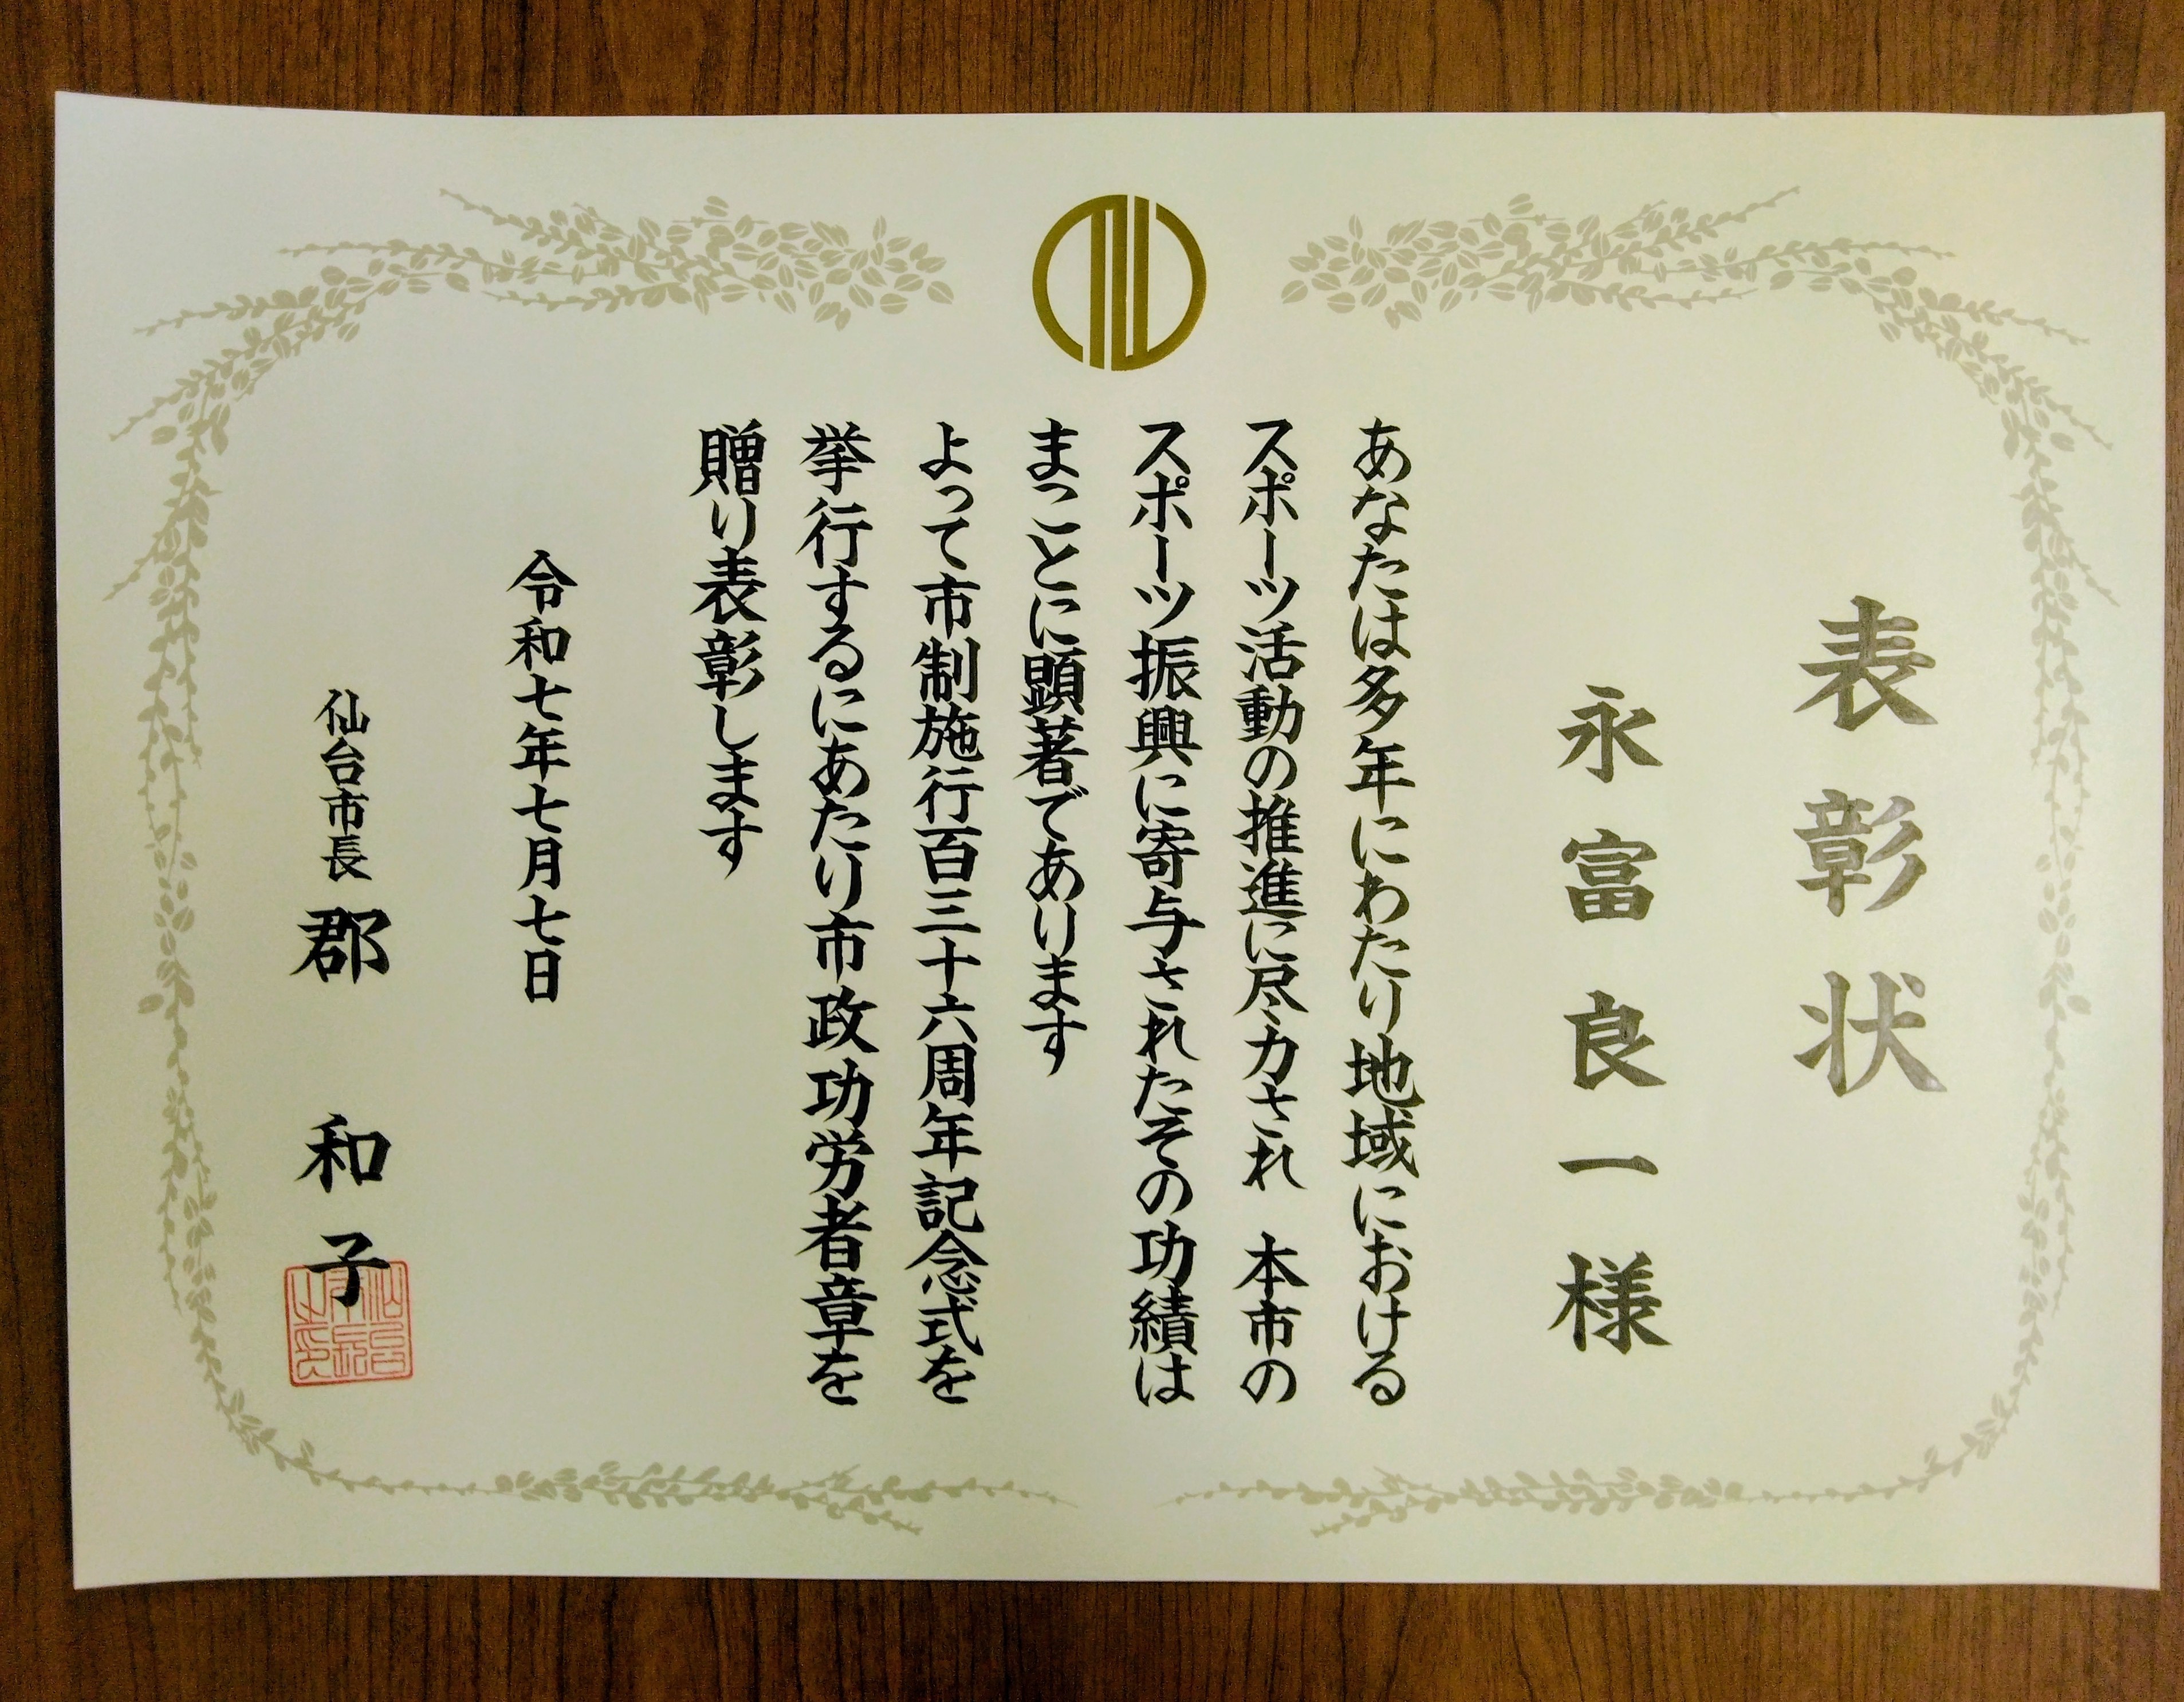 表彰状
永富良一様
あなたは多年にわたり地域における
スポーツ活動の推進に尽力され 本市の
スポーツ振興に寄与されたその功績は
まことに顕著であります
よって市制施行百三十六周年記念式を
挙行するにあたり市政功労者章を
贈り表彰します
令和七年七月七日
仙台市長 郡 和子
仙台市長之印